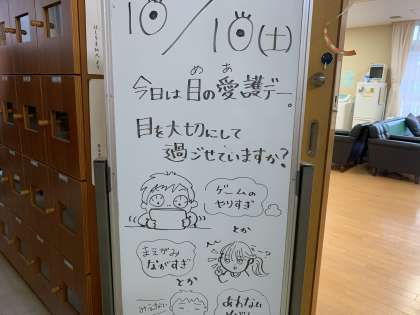 10/10(土)
め あ
今日は目の愛護デー。
目を大切にして
過ごせていますか?
ゲームの
やりすぎ
とか
まえがみ
ながすぎ
とか